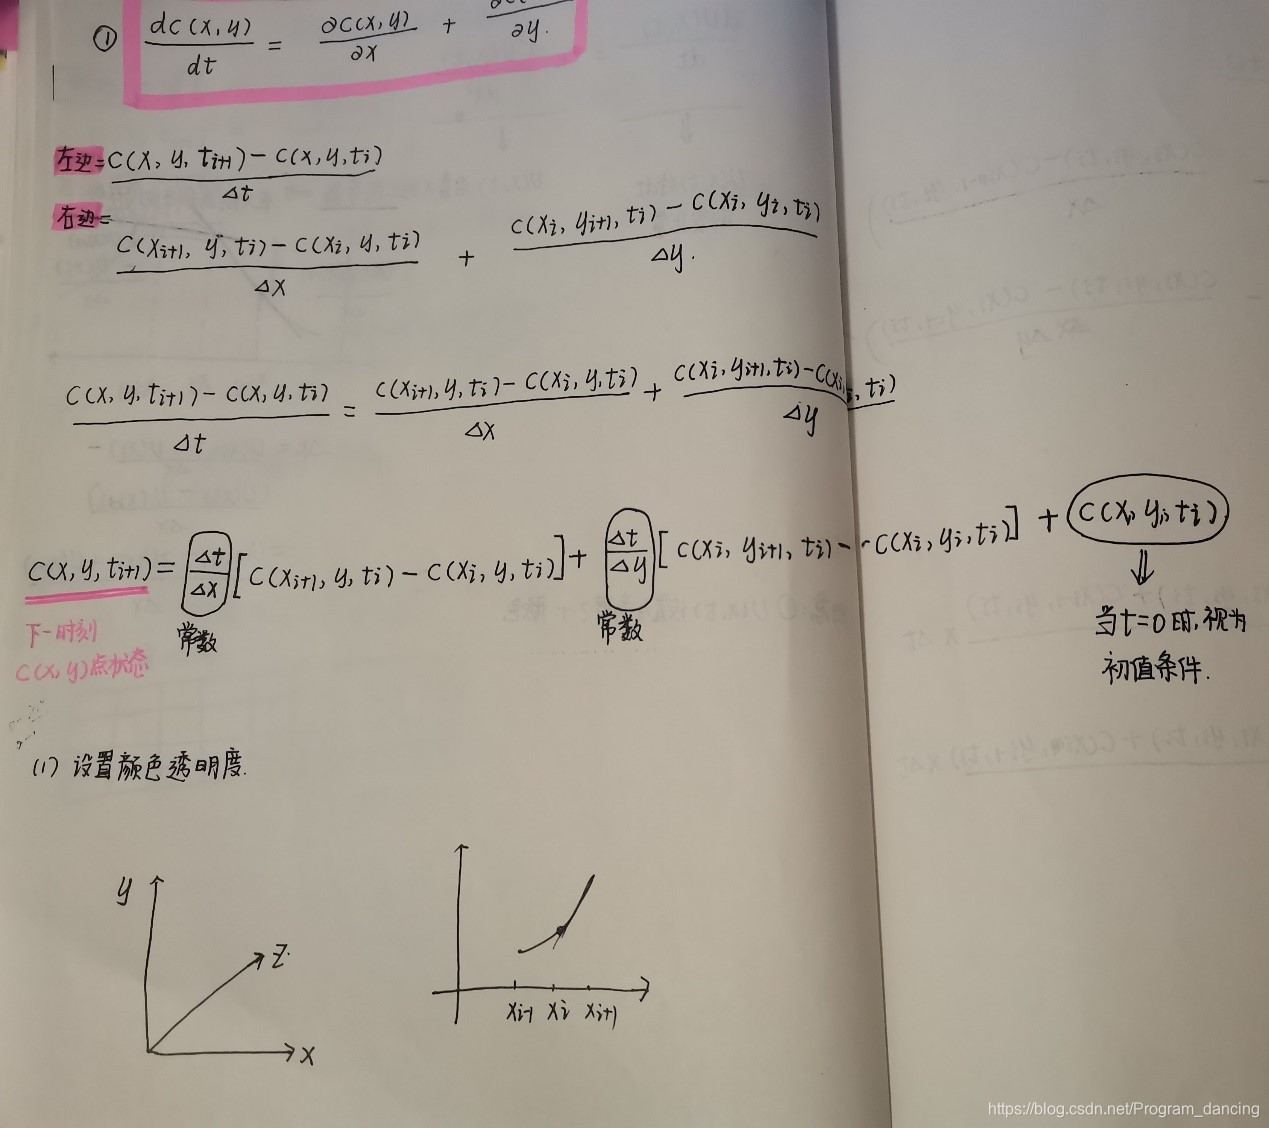 ① dC(x,y)/dt = ∂C(x,y)/∂x + ∂y.
左边= C(x, y, t_{i+1}) - C(x,y,t_i) / Δt
右边= C(x_{i+1}, y, t_i) - C(x_i, y, t_i) / Δx + C(x_i, y_{i+1}, t_i) - C(x_i, y_i, t_i) / Δy.
C(x, y, t_{i+1}) - C(x, y, t_i) / Δt = C(x_{i+1}, y, t_i) - C(x_i, y, t_i) / Δx + C(x_i, y_{i+1}, t_i) - C(x_i, t_i) / Δy
C(x, y, t_{i+1}) = Δt/Δx [C(x_{i+1}, y, t_i) - C(x_i, y, t_i)] + Δt/Δy [C(x_i, y_{i+1}, t_i) - C(x_i, y_i, t_i)] + C(x, y, t_i)
下一时刻
C(x, y)点状态
常数
常数
⇓
当t=0时,视为
初值条件.
(1) 设置颜色透明度.
y
z
x
x_{i-1} x_i x_{i+1}
https://blog.csdn.net/Program_dancing